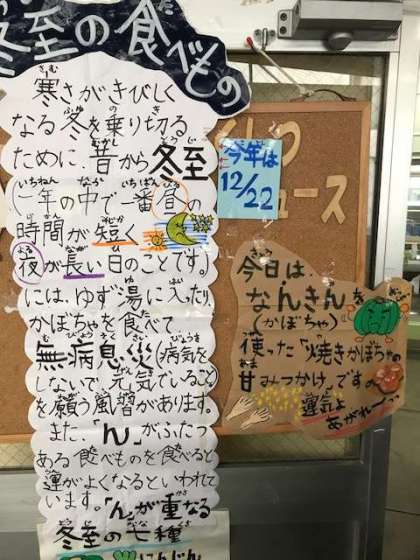 冬至の食べもの
寒さがきびしく
なる冬を乗り切る
ために、昔から冬至
(一年の中で一番昼の
時間が短く
夜が長い日のことです。)
には、ゆず湯に入ったり、
かぼちゃを食べて
無病息災(病気を
しないで元気でいること)
を願う風習があります。
また、「ん」がふたつ
ある食べものを食べると
運がよくなるといわれて
います。「ん」が重なる
冬至の七種
にんじん
今年は
12/22
ュース
今日は、
なんきんを
(かぼちゃ)
使った「焼きかぼちゃの
甘みつかけ」ですの
運気よ
あがれー